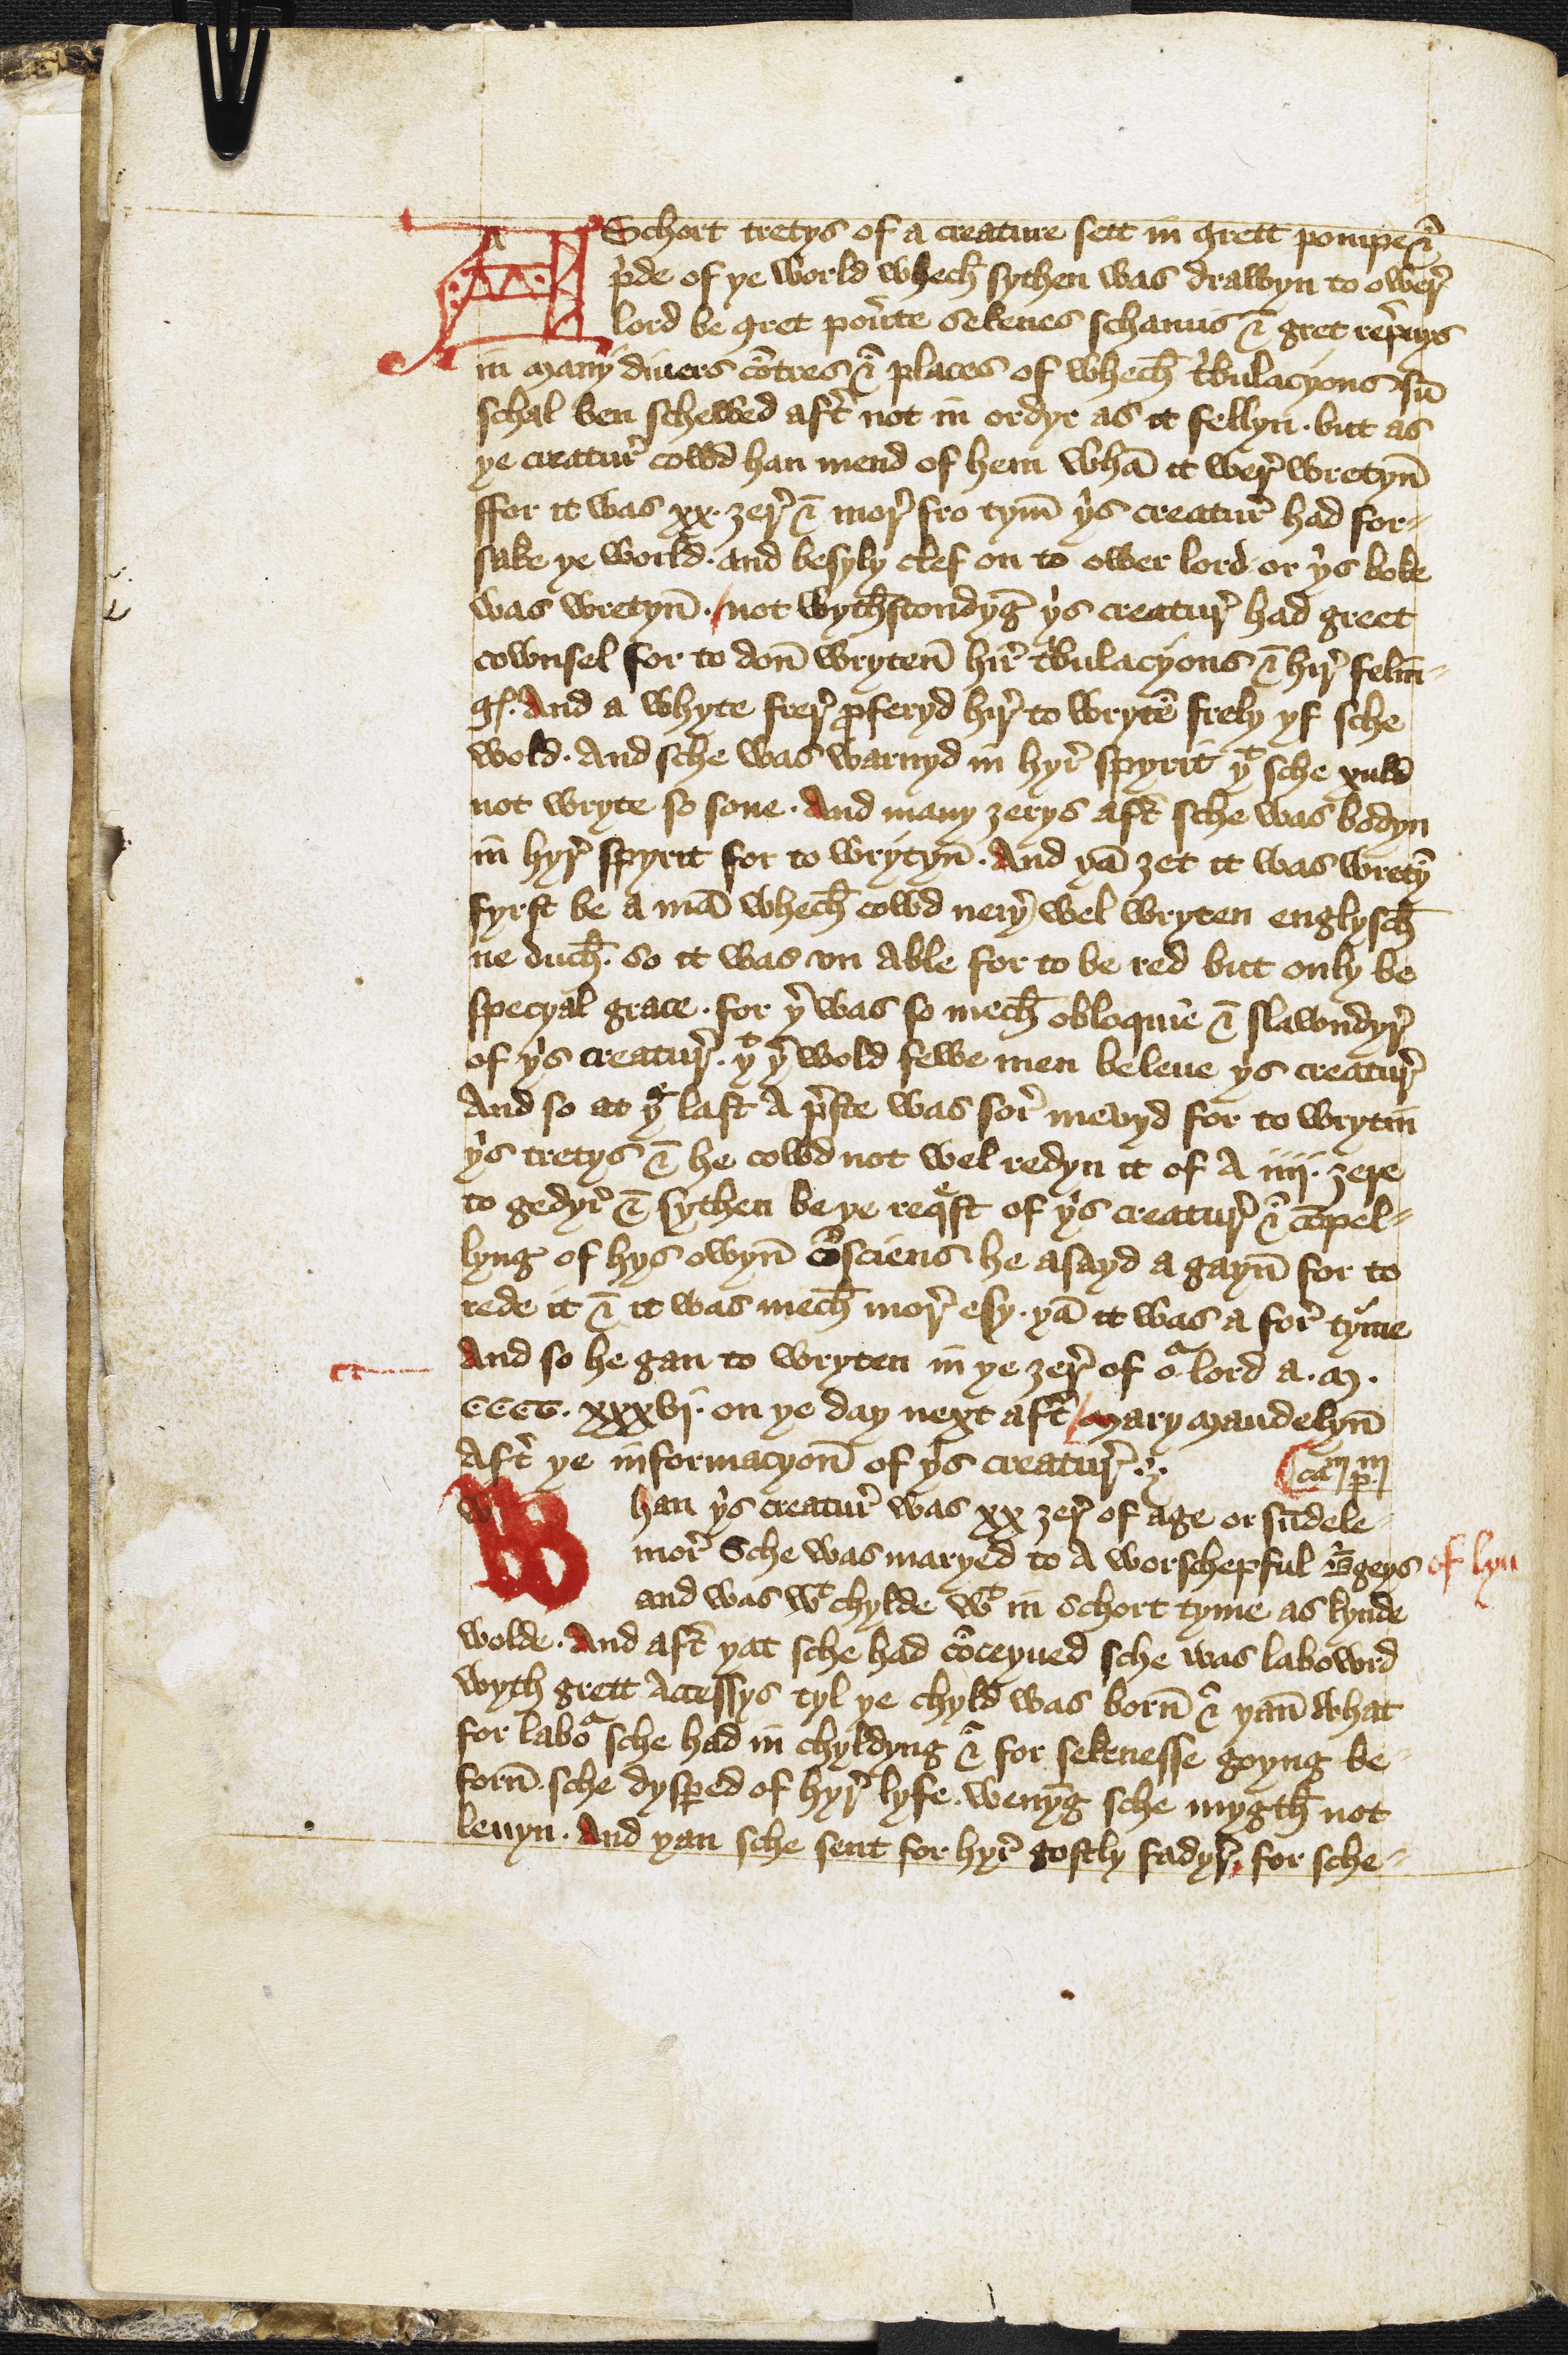 A Schort tretys of a creature sett in grett pompe &
p̉de of ye world whech̄ sythen was drawyn to ower̉
lord be gret pou̓te sekenes schamis & gret rep̉uys
in many diuers cõtres & places of whech̄ t̉bulacyons sū
schal ben schewed aft̉ not in ordyr as it fellyn · but as
ye creatur̉ cowd han mend of hem whā it wer̉ wretyn̄
ffor it was xx · zer̉ & mor̉ fro tym̄ ẏs creatur̉ had for⸗
sake ye world · and besyly clef on to ower lord or ẏs boke
was wretyn̄ · / not wyth̄stondyḡ ẏs creatur̉ had greet
cownsel for to don̄ wryten̄ hir̉ t̉bulacyons & hir̉ felin̄⸗
gꝭ · And a whyte frer̉ ꝓferyd hir̉ to wrytē frely yf sche
wold · And sche was warnyd in hyr̉ spyrit yͭ sche xuld
not wryte so sone · And many zerys aft̉ sche was bodyn
in hyr̉ spyrit for to wrytyn̄ · And yā zet it was wretȳ
fyrst be a mā whech̄ cowd neyr̉ wel wryten englysch̄
ne duch̄ · so it was vn able for to be red but only be
specyal grace · for ẏ was so mech̄ obloquie & slawndyr̉
of ẏs creatur̉ · yͭ ẏ wold fewe men beleue ẏs creatur̉
And so at yͤ last A p̉ste was sor̉ mevyd for to wrytin
ẏs tretys & he cowd not wel redyn it of A iiij · zere
to gedyr̉ & sythen be ye reqͤst of ẏs creatur̉ & cōpel⸗
lyng of hys owyn̄ cōsciens he asayd a gayn̄ for to
rede it & it was mech̄ mor̉ esy · yā it was a for̉ tyme
And so he gan to wryten in ye zer̉ of oͬ lord a · m ·
cccc · xxxvj · on ye day next aft̉ / mary maudelyn̄
Aft̉ ye informacyon̄ of ẏs creatur̉ ·
caᵐ pᵐ
W han ẏs creatur̉ was xx zer̉ of age or sūdele⸗
mor̉ Sche was maryed to A worschepful B̉geys of lyn
and was wͭ chylde wͭ in schort tyme as kynde
wolde · And aft̉ yat sche had cōceyued sche was labowrd
wyth grett Accessys tyl ye chyld was born̄ & yan̄ what
for laboͬ sche had in chyldyng & for sekenesse goyng be⸗
forn̄ · sche dysꝑed of hyr̉ lyfe · wenyḡ sche mygth̄ not
leuyn · And yan sche sent for hyr̉ gostly fadyr̉ · for sche⸗